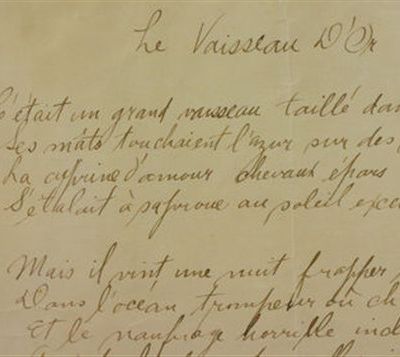 Le Vaisseau D'Or
C'était un grand vaisseau taillé dan
Ses mâts touchaient l'azur sur des
La cyprine d'amour chevaux épars
S'étalait à sa proue au soleil exc
Mais il vint une nuit frapper
Dans l'océan trompeur où ch
Et le naufrage horrible inc